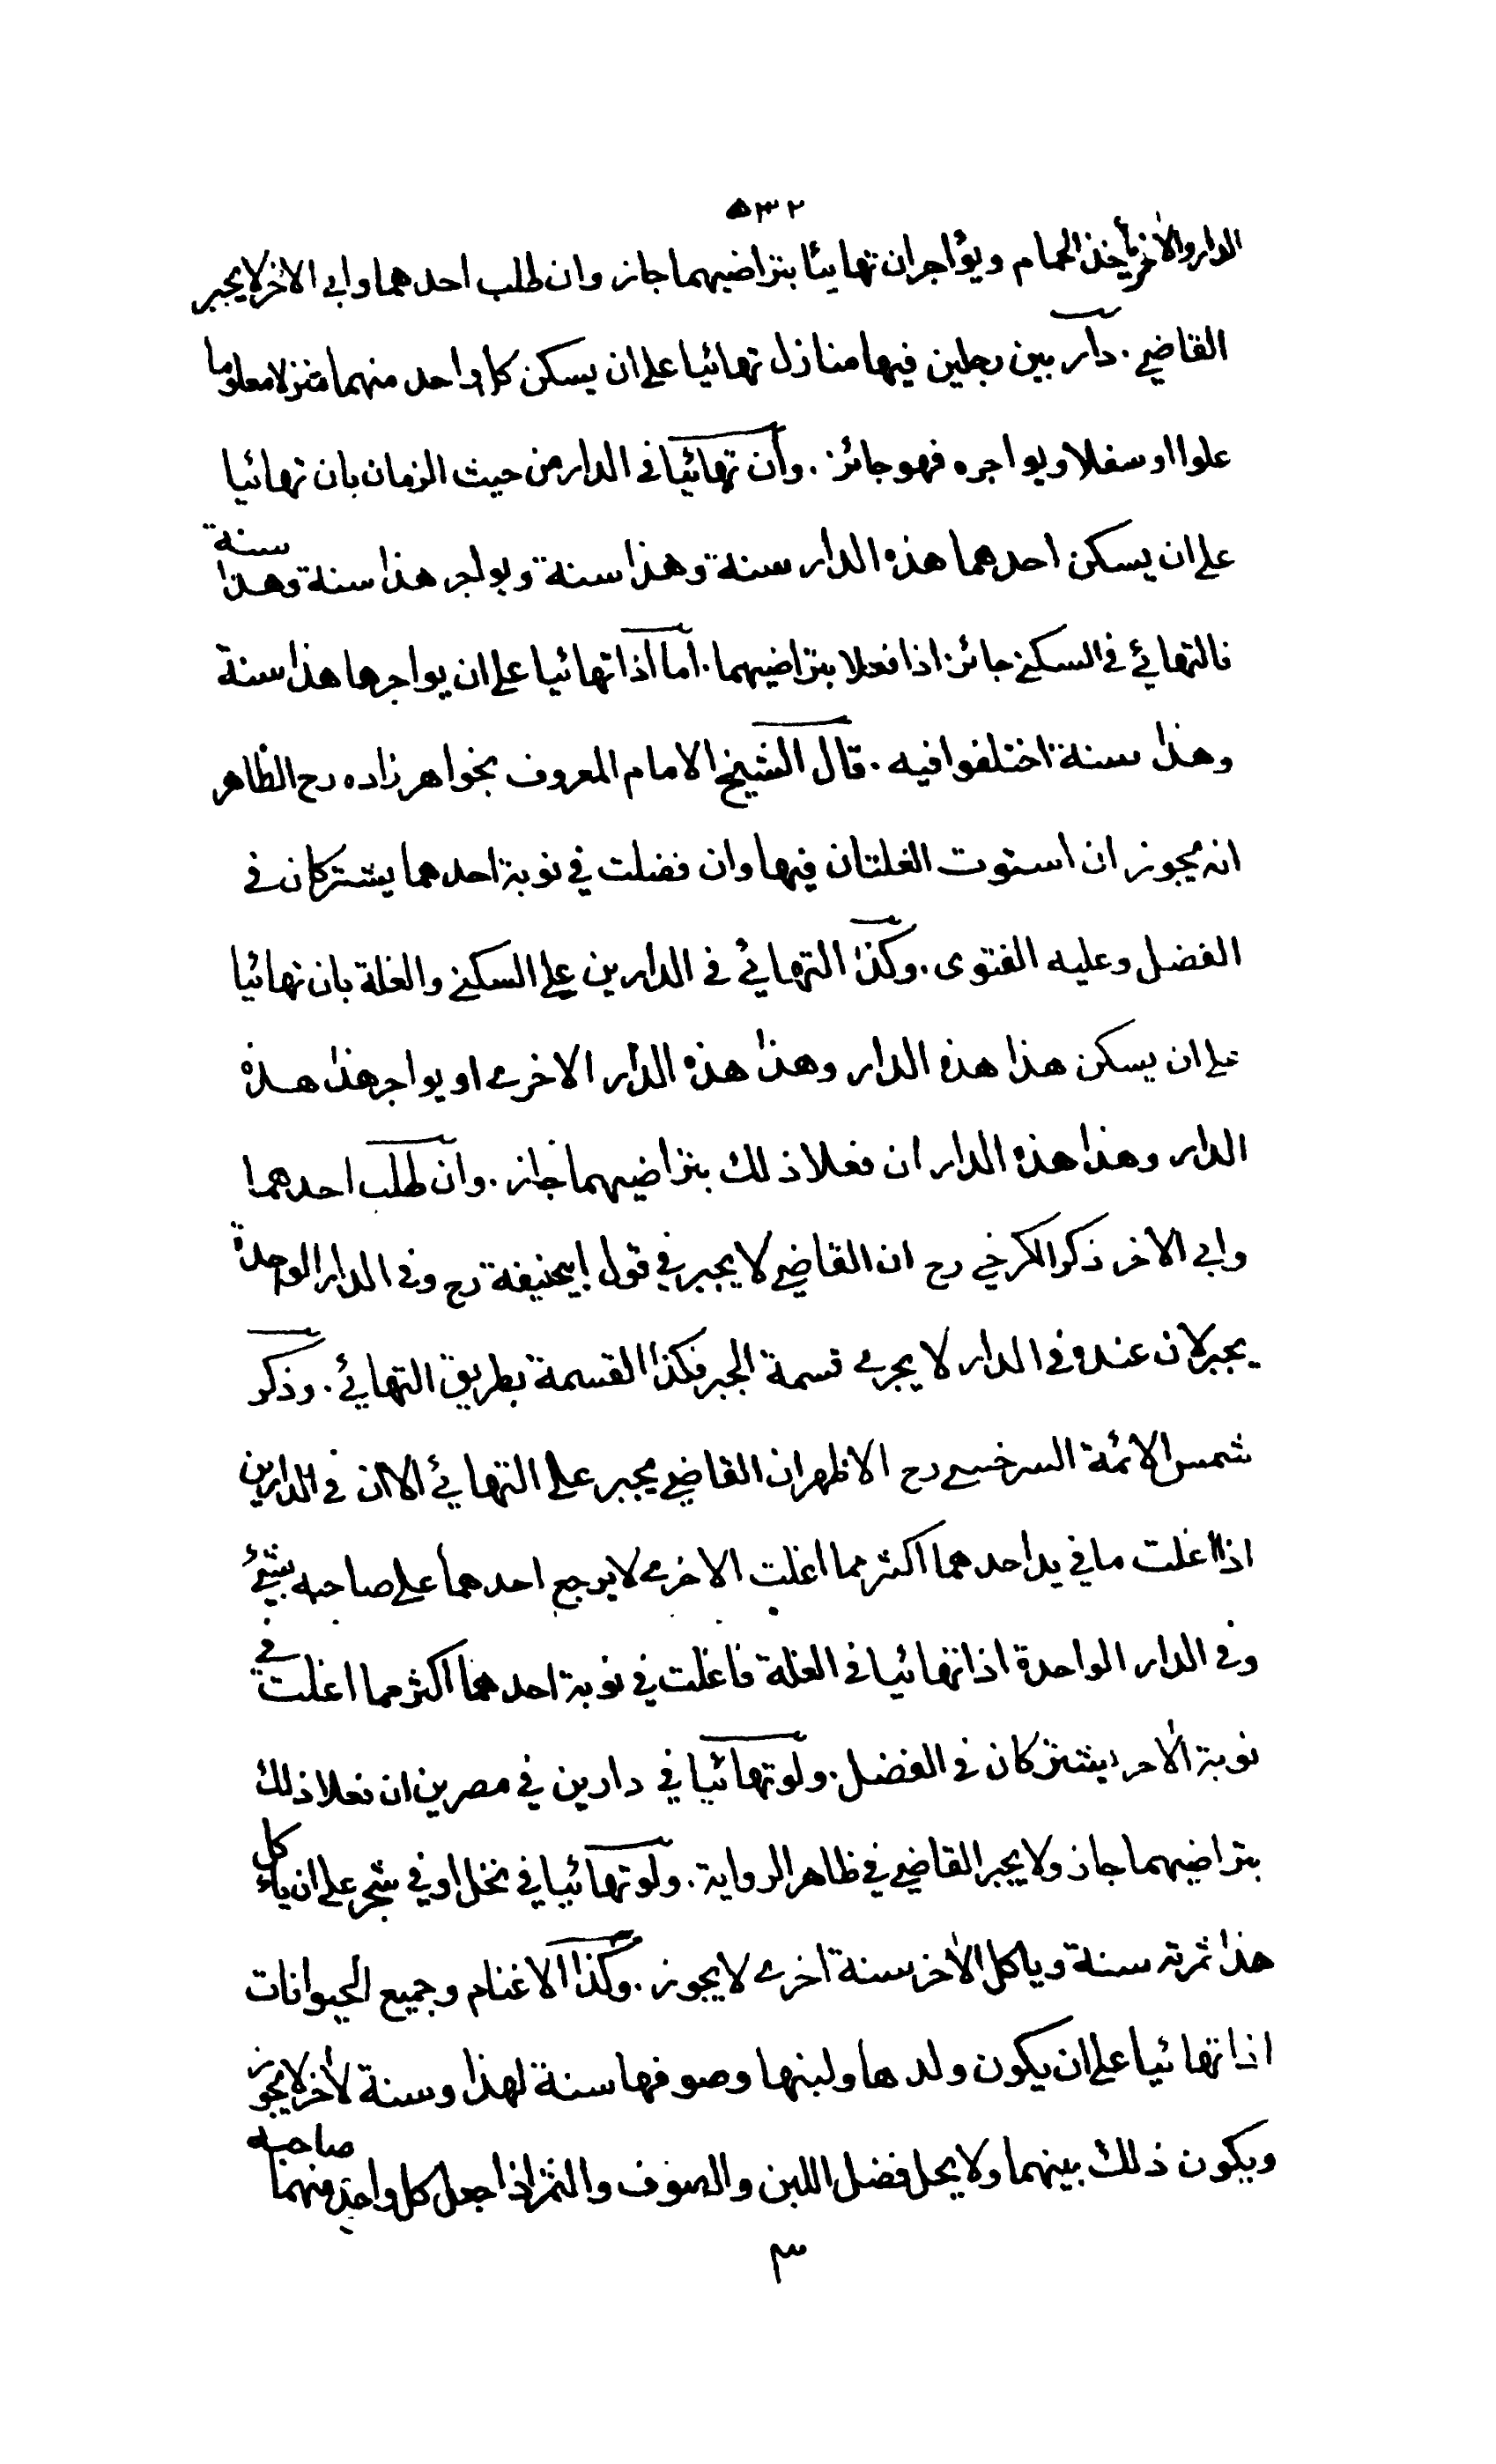 ٥٣٢
الدار والاٰخر يأخذ الحمام ويؤاجران تهايئا بتراضيهما جاز وان طلب احدهما وابى الاٰخر لا يجبر
القاضي . دار بين رجلين فيها منازل تهائيا على ان يسكن كل واحد منهما منزلا معلوما
علوا او سفلا ويواجره فهو جائز . وان تهائيا فى الدار من حيث الزمان بان تهائيا
على ان يسكن احدهما هذه الدار سنة وهذا سنة ويواجر هذا سنة وهذا سنة
فالتهائي فى السكنى جائز اذا فعلا بتراضيهما . اما اذا تهائيا على ان يواجرها هذا سنة
وهذا سنة اختلفوا فيه . قال الشيخ الامام المعروف بخواهر زاده رح الظاهر
انه يجوز ان استوت الغلتان فيها وان فضلت في نوبة احدهما يشتركان فى
الفضل وعليه الفتوى . وكذا التهائي فى الدارين على السكنى والغلة بان تهائيا
على ان يسكن هذا هذه الدار وهذا هذه الدار الاخرى او يواجر هذا هذه
الدار وهذا هذه الدار ان فعلا ذلك بتراضيهما جاز . وان طلب احدهما
وابى الاخر ذكر الكرخي رح ان القاضي لا يجبر في قول ابيحنيفة رح وفى الدار الواحدة
يجبر لان عنده فى الدار لا يجرى قسمة الجبر فكذا القسمة بطريق التهائي . وذكر
شمس الائمة السرخسى رح الاظهر ان القاضي يجبر على التهائي الا ان فى الدارين
اذا اغلت ما في يد احدهما اكثر مما اغلت الاخرى لا يرجع احدهما على صاحبه بشئ
وفى الدار الواحدة اذا تهائيا فى الغلة فاغلت في نوبة احدهما اكثر مما اغلت في
نوبة الاٰخر يشتركان فى الفضل . ولو تهائيا في دارين في مصرين ان فعلا ذلك
بتراضيهما جاز ولا يجبر القاضي في ظاهر الرواية . ولو تهائيا في نخل او في شجر على ان يأكل
هذا ثمرته سنة وياكل الاٰخر سنة اخرى لا يجوز . وكذا الاغنام وجميع الحيوانات
اذا تهائيا على ان يكون ولدها ولبنها وصوفها سنة لهذا وسنة لاٰخر لا يجوز
ويكون ذلك بينهما ولا يحل فضل اللبن والصوف والثمر اذا جعل كل واحد منهما صاحبه
٣